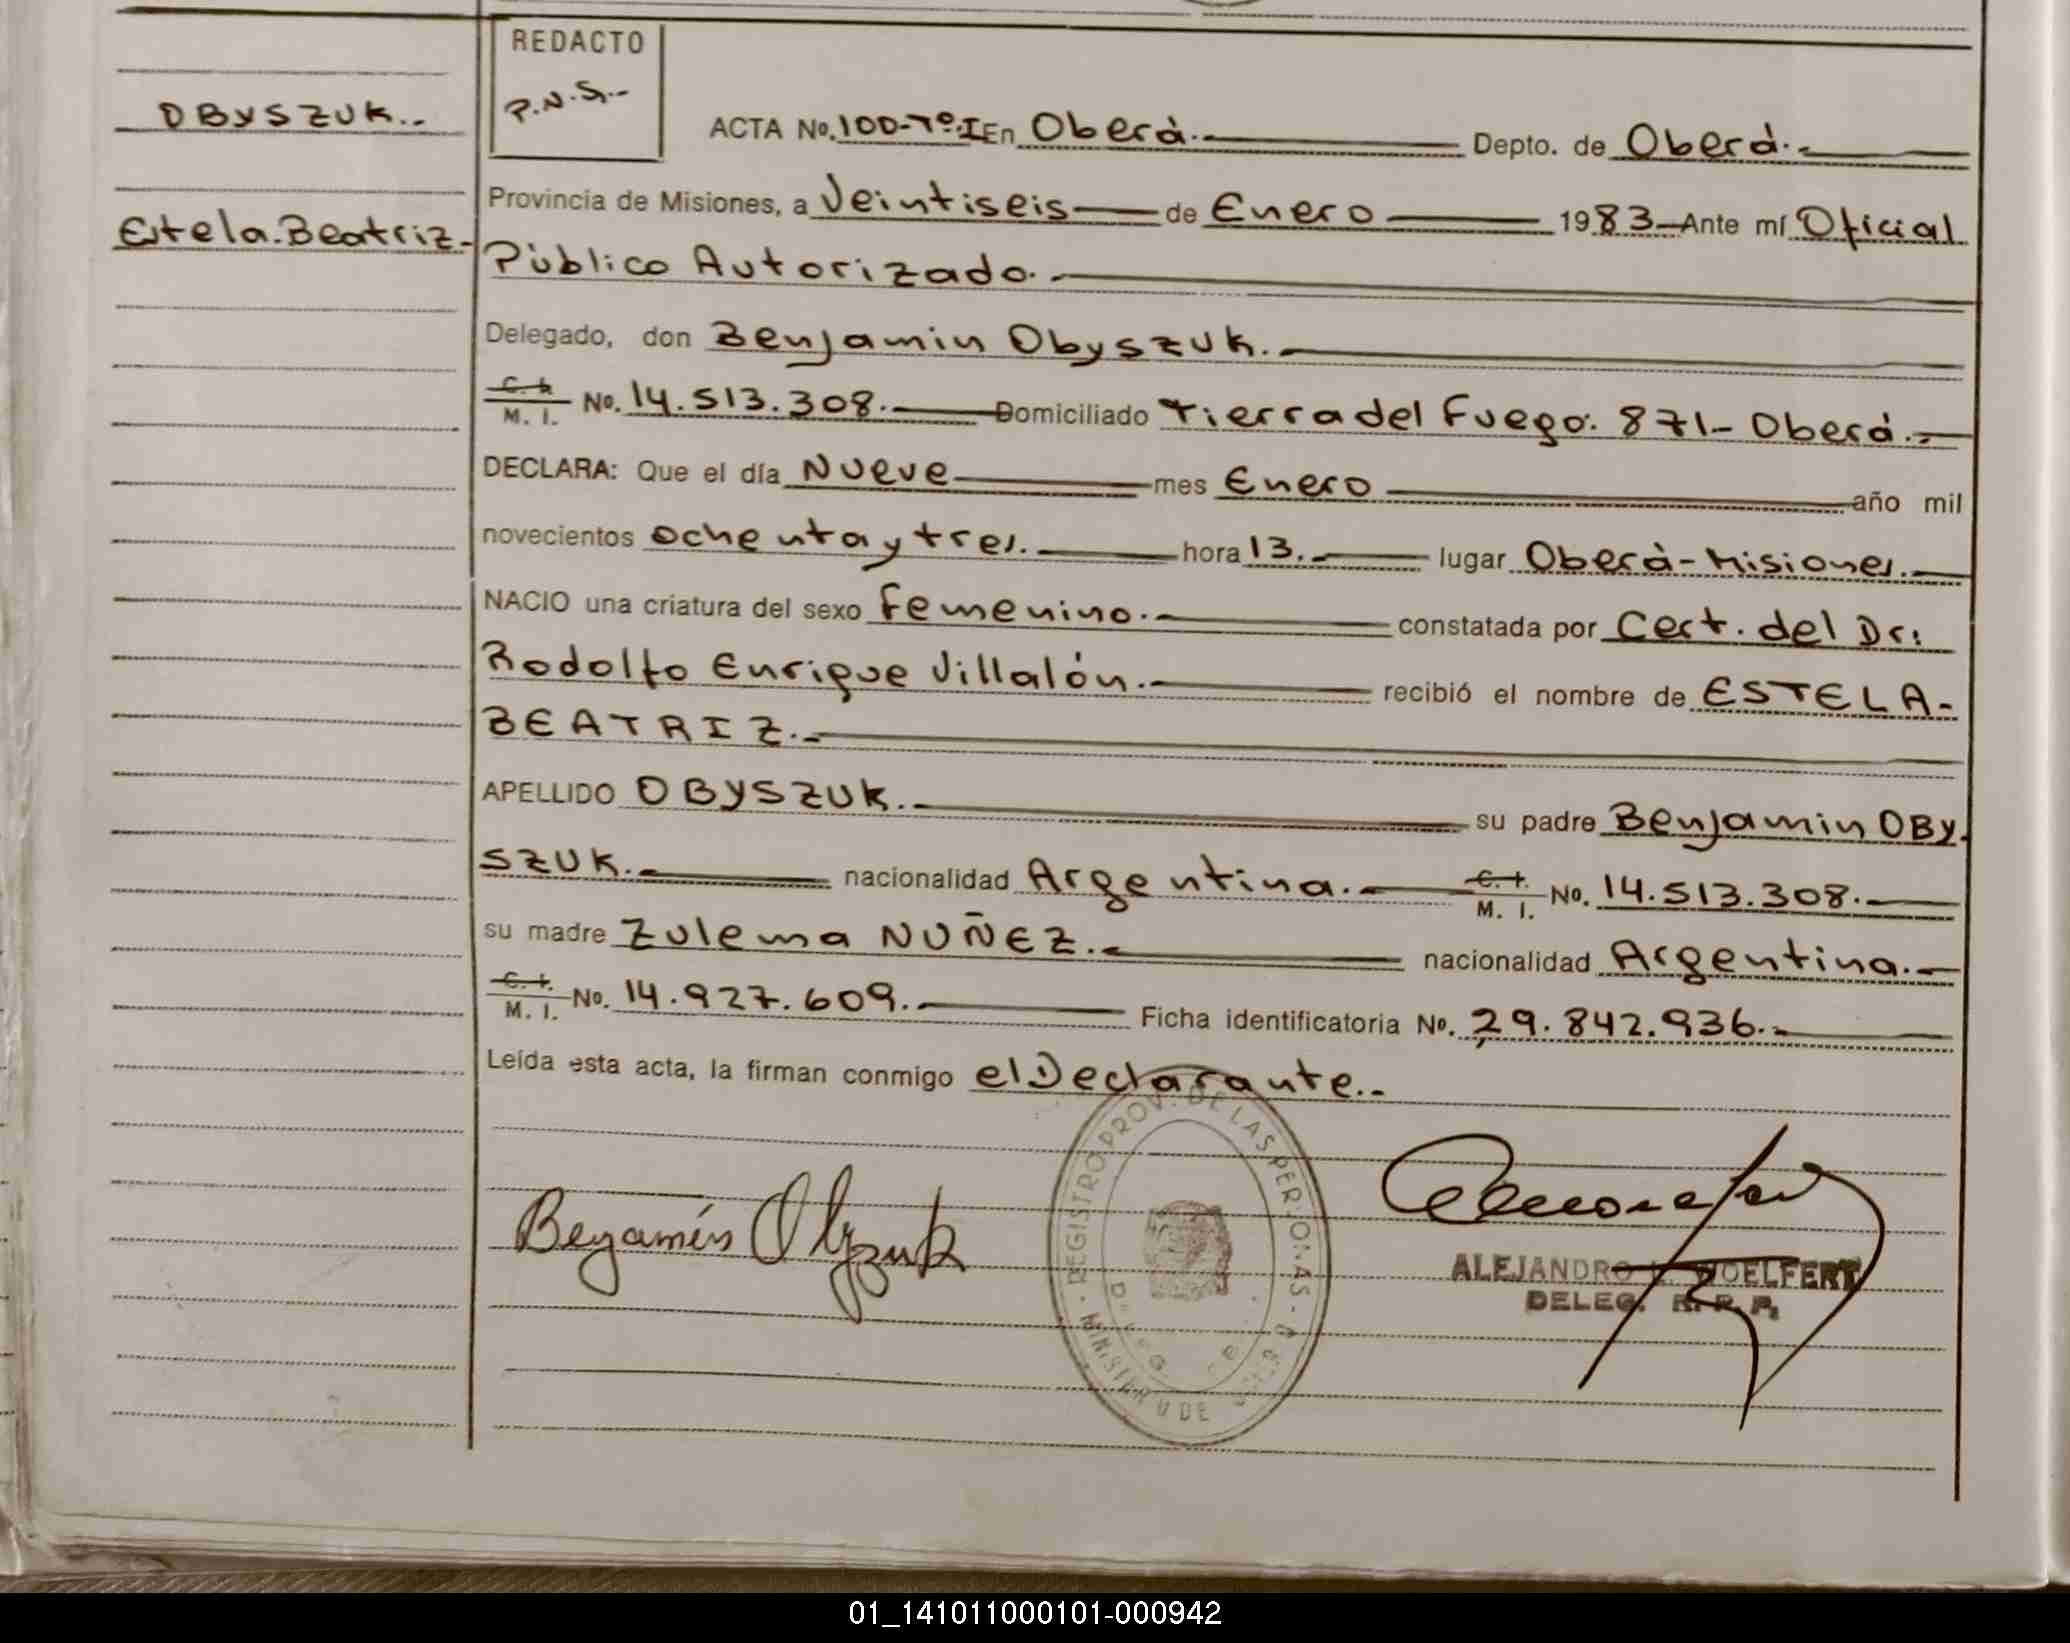 REDACTO
P.N.S.-
OBYSZUK.-
Estela.Beatriz.-
ACTA No. 100-Tº.I En Oberà. Depto. de Oberà.-
Provincia de Misiones, a Veintiseis de Enero 1983 Ante mí Oficial
Pùblico Autorizado.-
Delegado, don Benjamin Obyszuk.-
C. I. M. I. No. 14.513.308. Domiciliado Tierra del Fuego. 871- Oberá.-
DECLARA: Que el día Nueve mes Enero año mil
novecientos ochenta y tres. hora 13. lugar Oberà-Misiones.-
NACIO una criatura del sexo Femenino. constatada por Cert. del Dr:
Rodolfo Enrique Villalón.- recibió el nombre de ESTELA-
BEATRIZ.-
APELLIDO OBYSZUK.- su padre Benjamin OBY
SZUK.- nacionalidad Argentina.- C. I. M. I. No. 14.513.308.-
su madre Zulema NUÑEZ.- nacionalidad Argentina.-
C. I. M. I. No. 14.927.609.- Ficha identificatoria No. 29.842.936.-
Leída esta acta, la firman conmigo el Declarante.-
REGISTRO PROV. DE LAS PERSONAS
MINISTERIO DE
Benjamín Obyszuk
ALEJANDRO
DELEG. R. P. P.
01_141011000101-000942